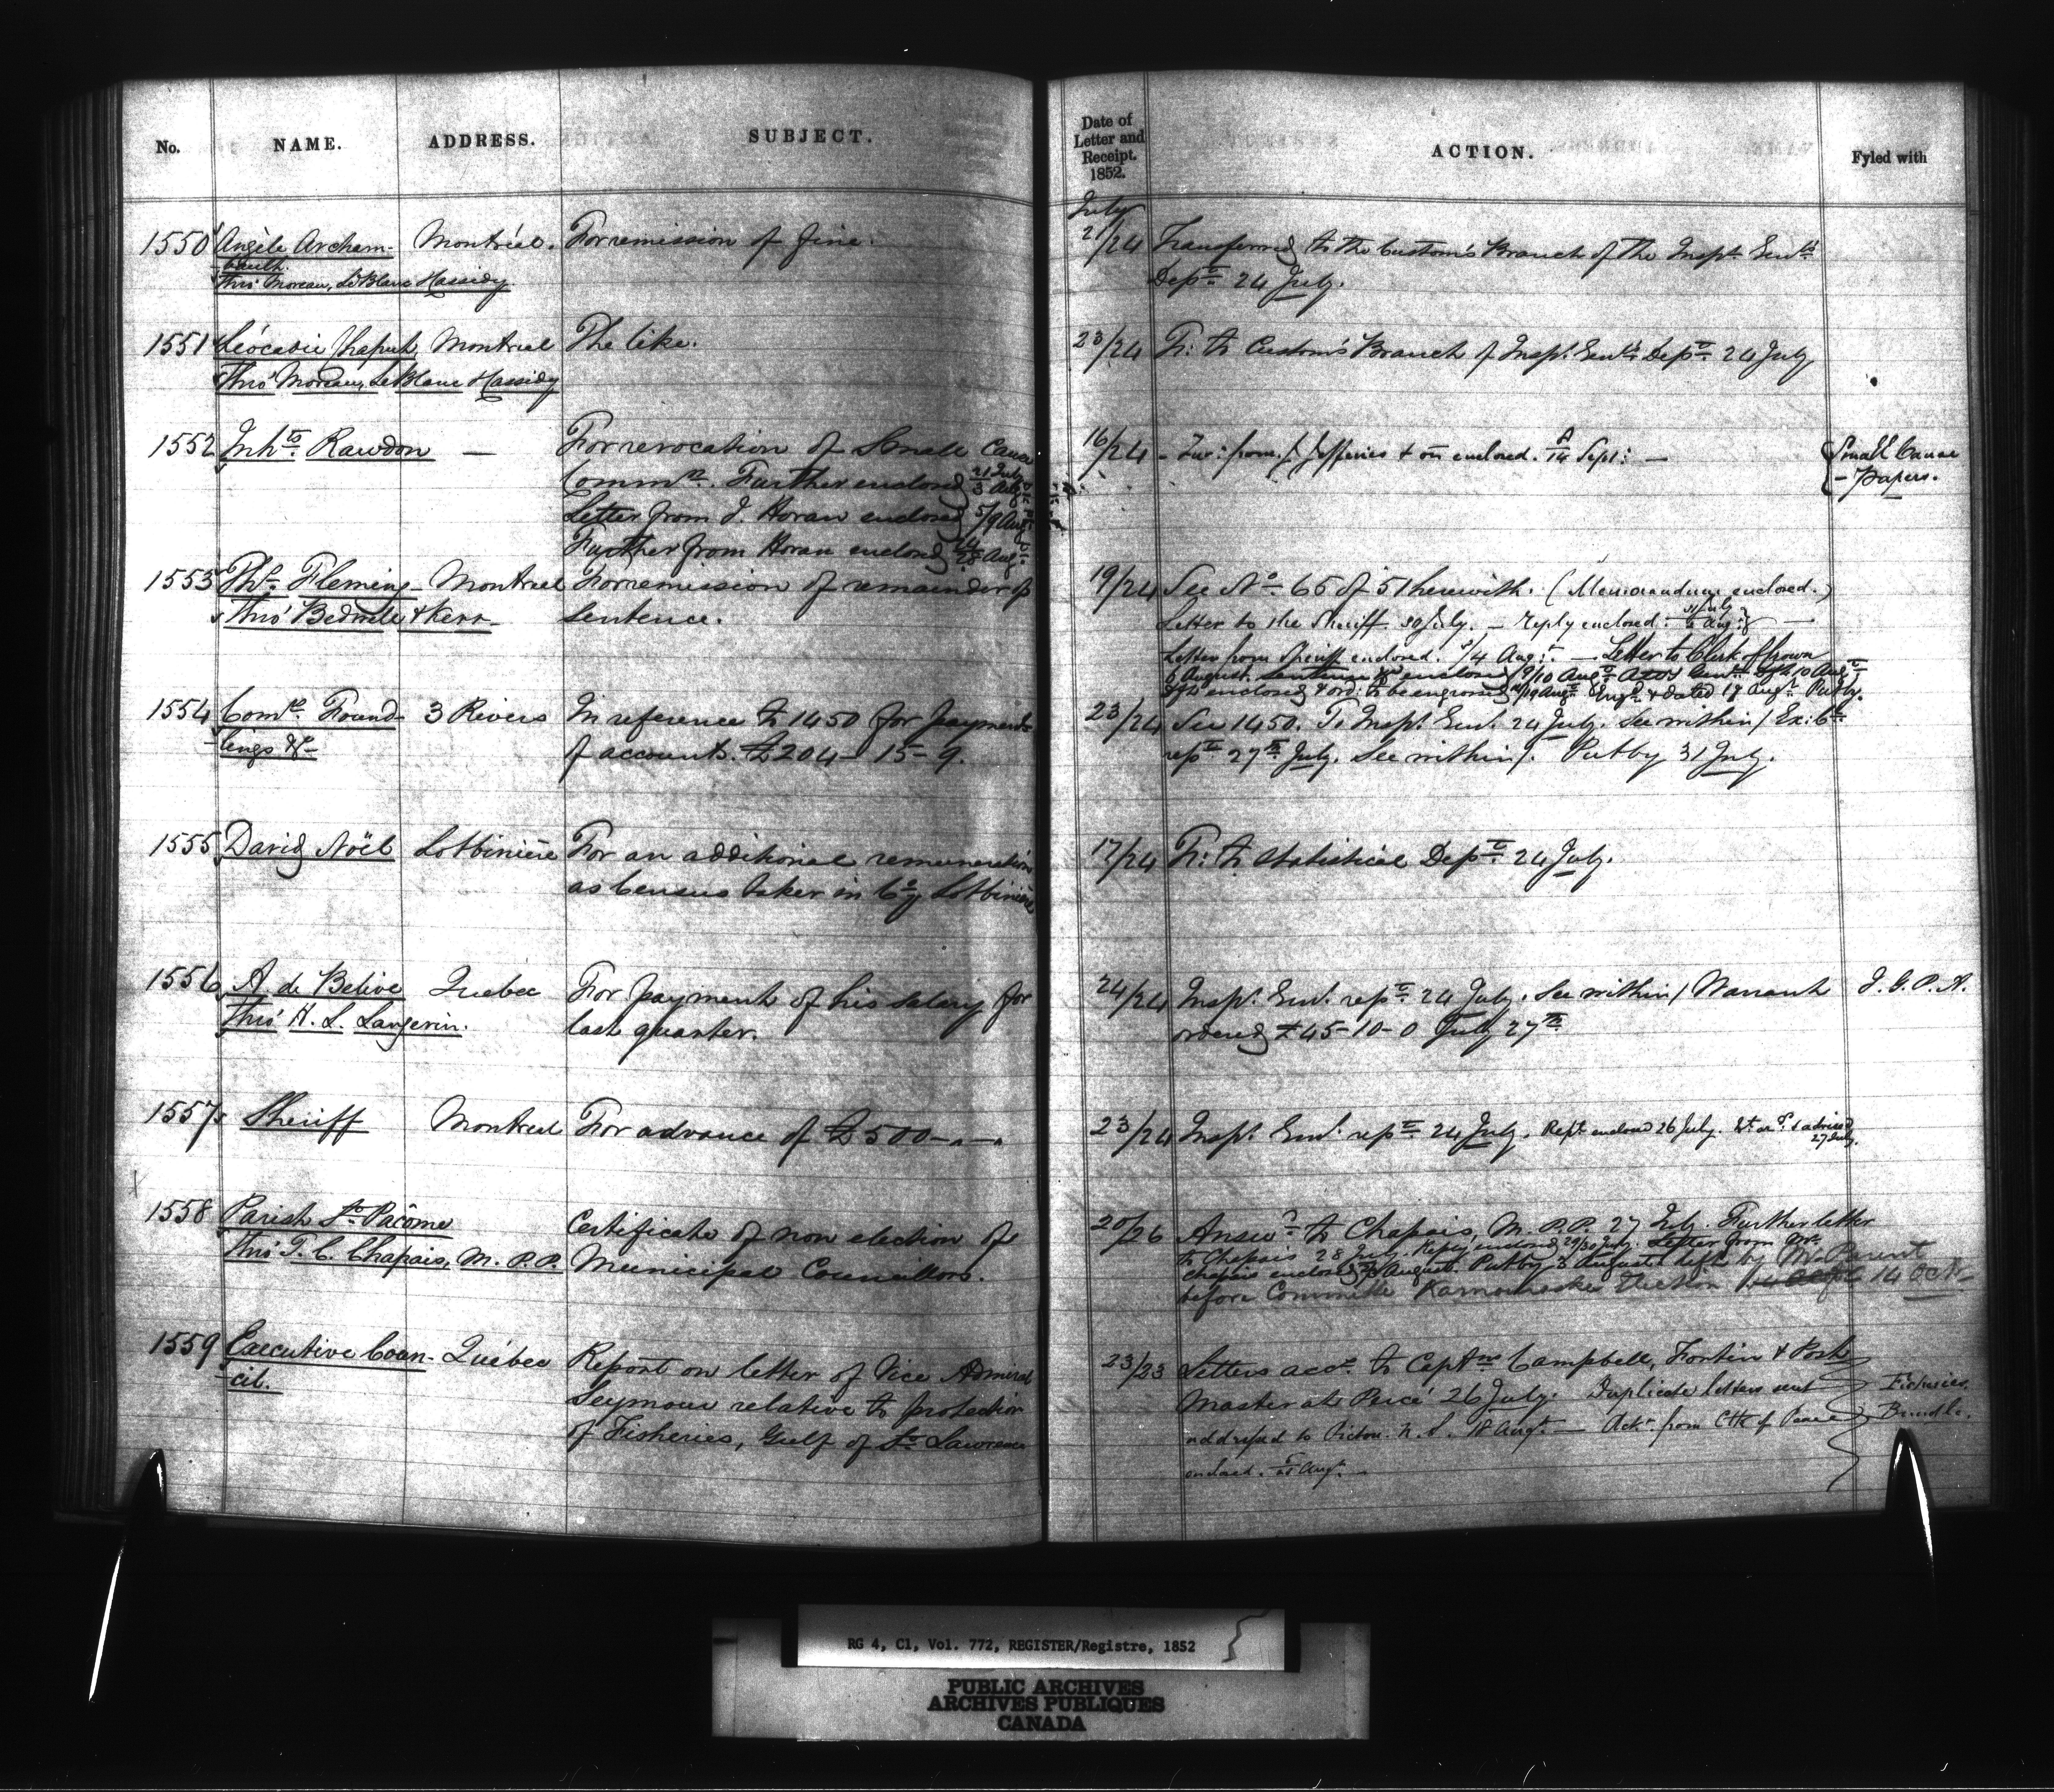 No.
NAME.
ADDRESS.
SUBJECT.
1550 Angèle Archam- Montréal. For remission of fine.
-bault.
Thro' Moreau, LeBlanc Hassidy
1551 Léocadie Chaput Montreal The like.
Thro' Moreau, LeBlanc Hassidy
1552 Inhts Rawdon — For revocation of Small Cause
Commn. Further enclosed 21 July 3 Aug
Letter from J. Horan enclosed 5/9 Aug
Further from Horan enclosed Aug.
1553 Ths. Fleming Montreal For remission of remainder of
Thro' Bedwell & Kerr sentence.
1554 Comrs. Found- 3 Rivers In reference to 1450 for payment
-lings &c of accounts. £204-15-9.
1555 David Noël Lotbiniere For an additional remuneration
as Census taker in Cy Lotbiniere
1556 A. de Belive Quebec For payment of his salary for
Thro' H. L. Langevin. last quarter.
1557 Sheriff Montreal For advance of £500-"-"
1558 Parish St. Pacôme Certificate of non election of
Thro' J. C. Chapais, M.P.P. Municipal Councillors.
1559 Executive Coun- Québec Report on letter of Vice Admiral
-cil. Seymour relative to protection
of Fisheries, Gulf of St. Lawrence
Date of
Letter and
Receipt.
1852.
ACTION.
Fyled with
July
2/24 Transferred to the Custom's Branch of the Inspr. Genl's
Dept. 24 July.
23/24 Tr: to Custom's Branch of Inspr. Genl's Dept. 24 July
16/24 - Fur: from J. Jefferies & on enclosed. 14 Sept: — Small Cause
- Papers.
19/24 See No. 65 of 51 herewith. (Memorandum enclosed.)
Letter to the Sheriff 30 July. — Reply enclosed. 31 July Aug:
Letter from Sheriff enclosed. /4 Augt. — Letter to Clerk of Crown
6 August. enclosed 9/10 Augt. 10 Augt.
enclosed & ord: to be engrossed /19 Augt. Engd. & dated 19 Augt. Put by.
23/24 See 1450. To Inspr. Genl. 24 July. See within / Ex: Cl
rept. 27th July. See within/. Put by 31 July.
17/24 Tr: to Statistical Dept. 24 July.
24/24 Inspr. Genl. rept. 24 July. See within / Warrant J. G. P. A.
ordered £45-10-0 July 27th
23/24 Inspr. Genl. rept. 24 July. Rept. enclosed 26 July. Wt. ord. & advised
27 July.
20/26 Answd. to Chapais, M.P.P. 27 July. Further letter
to Chapais 28 July. Reply enclosed 29/30 July. Letter from Mr.
Chapais enclosed August. Put by 3 August. left by Mr. Parent
before Committee Kamouraska Election 14 Octr.
23/23 Letters accd. to Captns Campbell, Fortin & Post
Master at Percé 26 July. Duplicate letters sent Fisheries
addressed to Pictou. N. S. 18 Augt. — Ackn. from Clk of Peace Bundle.
enclosed. Augt. -
RG 4, C1, Vol. 772, REGISTER/Registre, 1852
PUBLIC ARCHIVES
ARCHIVES PUBLIQUES
CANADA